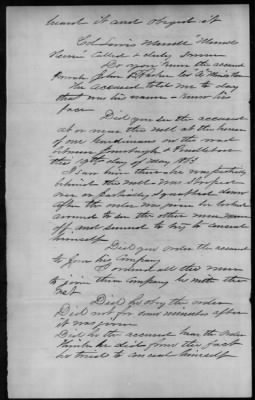 heard it and obeyed it
Col Lewis Merrell "Merrell
Horse" Called & duly sworn
Do you know the accused
Private John B Fisher Co A
The Accused told me to day
that was his name I know his
face
Did you see the accused
at or near this at the house
of one on the road
between & 
the 19th day of May 1863
I saw him there he was partially
behind this 
squatted down
after the order was given he looked
around to see the other men move
off and seemed to try to conceal
himself
Did you order the accused
to join his Company
I ordered all the men
to join their Company he with the
rest
Did he obey the order
Did not for some minutes after
it was given
Did he the accused hear the order
I think he did from the fact
he tried to conceal himself